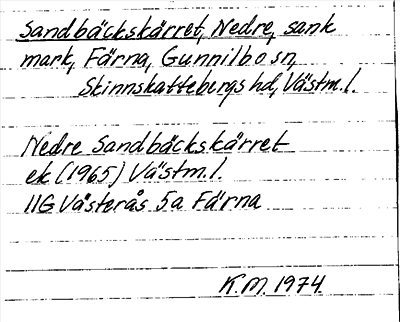 Sandbäckskärret, Nedre, sank
mark, Färna, Gunnilbo sn,
Skinnskattebergs hd, Västm.l.
Nedre Sandbäckskärret
ek (1965) Västm.l.
11G Västerås 5a Färna
K.M. 1974